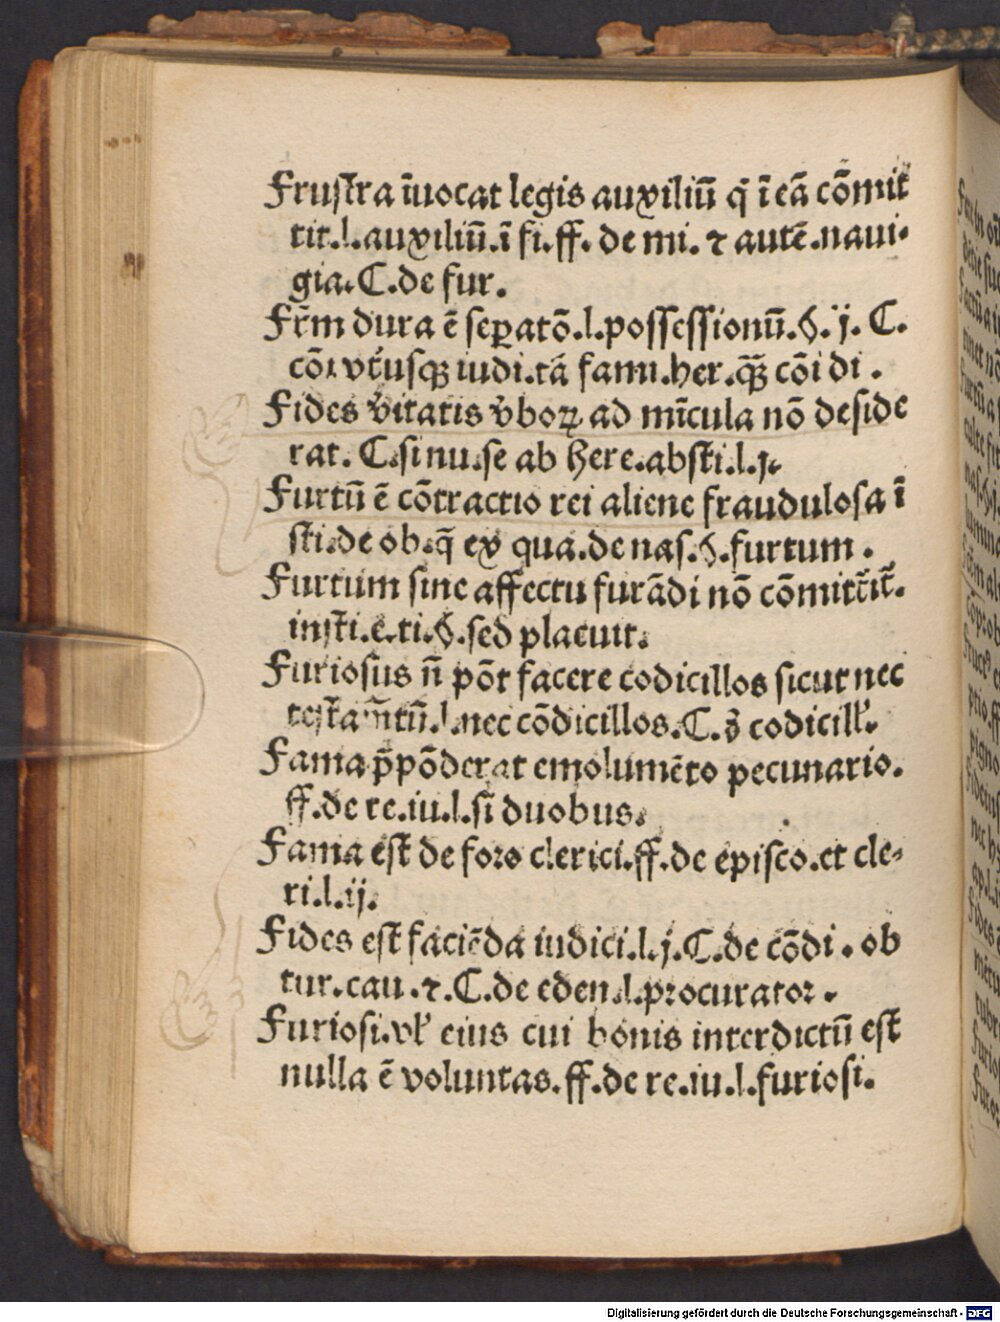 Frustra īuocat legis auxiliū q̄ ī eā cōmit
tit.l.auxiliū.ī fi.ff. de mi. ⁊ autē.naui-
gia.C.de fur.
Fr̄m dura ē sepatō.l.possessionū.§.ij. C.
cōi vtusqꝫ iudi.tā fami.her.qꝫ cōi di.
Fides v̄itatis v̄boꝝ ad mīcula nō deside
rat. C.si nu.se ab here.absti.l.j.
Furtū ē cōtractio rei aliene fraudulosa ī
sti.de ob.q̄ ex qua.de nas.§.furtum.
Furtum sine affectu furādi nō cōmittit̄.
insti.e.ti.§.sed placuit.
Furiosus n̄ pōt facere codicillos sicut nec
testam̄tū.l.nec cōdicillos.C.d̄ codicill'.
Fama p̄pōderat emolumēto pecunario.
ff.de re.iu.l.si duobus.
Fama est de foro clerici.ff.de episco.et cle-
ri.l.ij.
Fides est faciēda iudici.l.j.C.de cōdi. ob
tur.cau.⁊.C.de eden.l.procurator.
Furiosi.vl' eius cui bonis interdictū est
nulla ē voluntas.ff.de re.iu.l.furiosi.
Digitalisierung gefördert durch die Deutsche Forschungsgemeinschaft - DFG